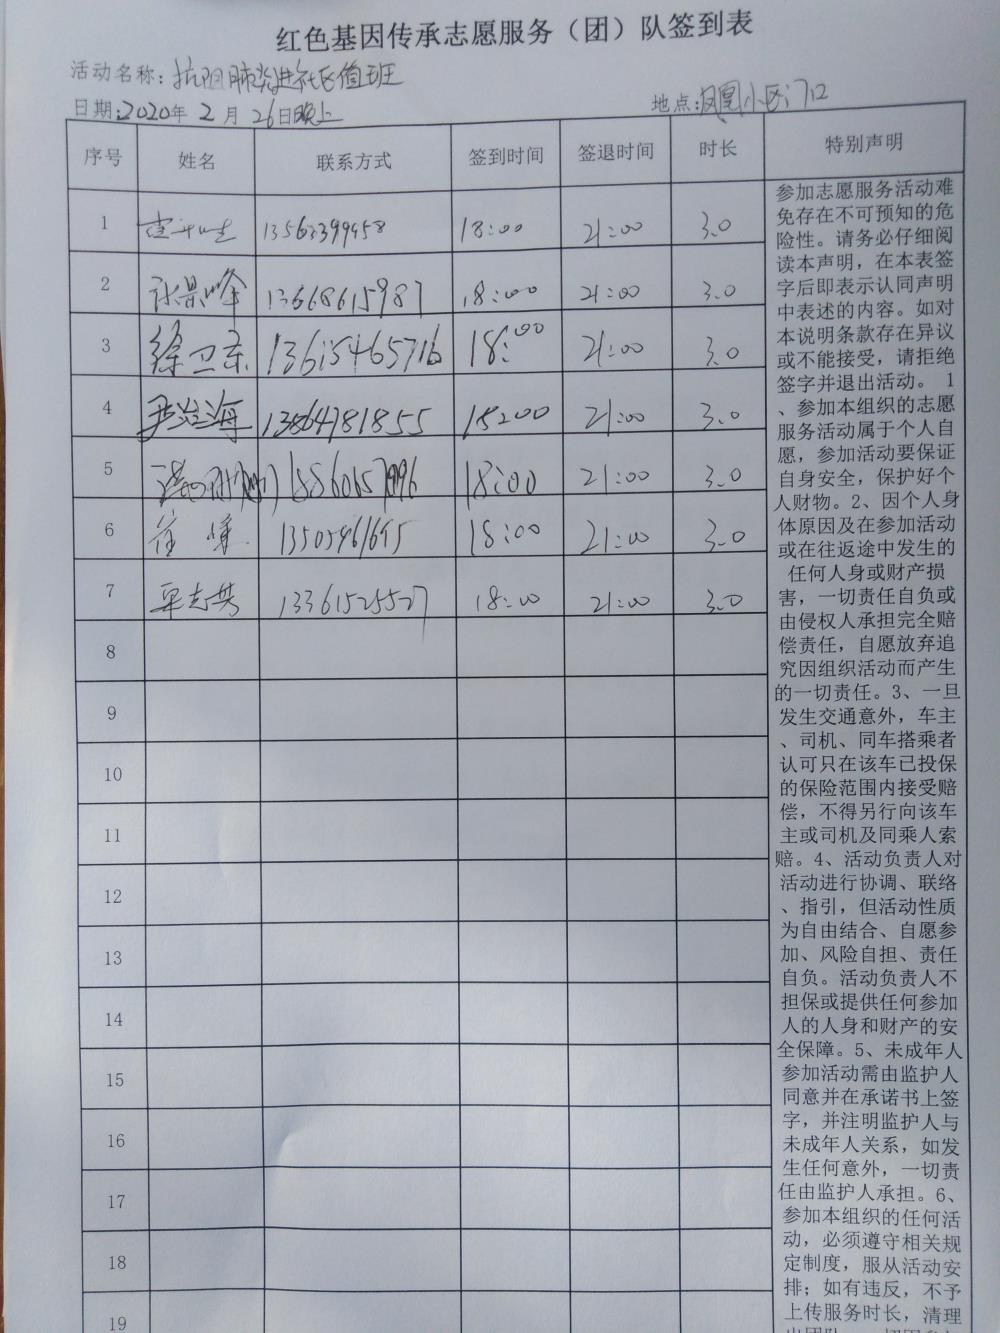 红色基因传承志愿服务（团）队签到表
活动名称：抗阻肺炎进社区值班
日期：2020年2月26日晚上 地点：凤凰小区门口
序号 姓名 联系方式 签到时间 签退时间 时长 特别声明
1 18:00 21:00 3.0
2 张景峰 13668615987 18:00 21:00 3.0
3 徐卫东 13615465716 18:00 21:00 3.0
4 尹治海 13864781855 18:00 21:00 3.0
5 18:00 21:00 3.0
6 崔 18:00 21:00 3.0
7 13361525527 18:00 21:00 3.0
8
9
10
11
12
13
14
15
16
17
18
19
参加志愿服务活动难
免存在不可预知的危
险性。请务必仔细阅
读本声明，在本表签
字后即表示认同声明
中表述的内容。如对
本说明条款存在异议
或不能接受，请拒绝
签字并退出活动。 1
、参加本组织的志愿
服务活动属于个人自
愿，参加活动要保证
自身安全，保护好个
人财物。2、因个人身
体原因及在参加活动
或在往返途中发生的
任何人身或财产损
害，一切责任自负或
由侵权人承担完全赔
偿责任，自愿放弃追
究因组织活动而产生
的一切责任。3、一旦
发生交通意外，车主
、司机、同车搭乘者
认可只在该车已投保
的保险范围内接受赔
偿，不得另行向该车
主或司机及同乘人索
赔。4、活动负责人对
活动进行协调、联络
、指引，但活动性质
为自由结合、自愿参
加、风险自担、责任
自负。活动负责人不
担保或提供任何参加
人的人身和财产的安
全保障。5、未成年人
参加活动需由监护人
同意并在承诺书上签
字，并注明监护人与
未成年人关系，如发
生任何意外，一切责
任由监护人承担。6、
参加本组织的任何活
动，必须遵守相关规
定制度，服从活动安
排；如有违反，不予
上传服务时长，清理